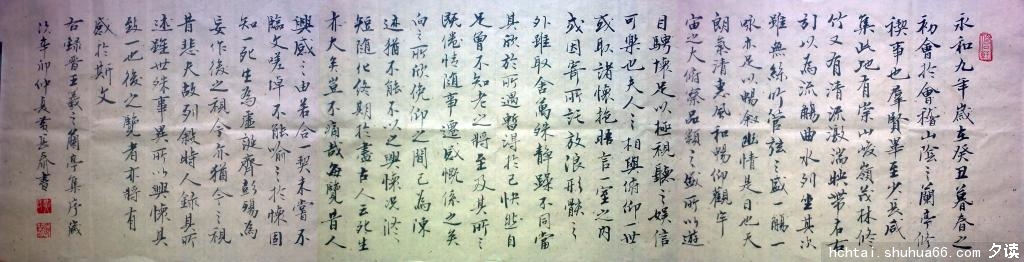 永和九年歲在癸丑暮春之
初會於會稽山陰之蘭亭修
禊事也羣賢畢至少長咸
集此地有崇山峻嶺茂林修
竹又有清流激湍映帶左右
引以為流觴曲水列坐其次
雖無絲竹管弦之盛一觴一
詠亦足以暢敘幽情是日也天
朗氣清惠風和暢仰觀宇
宙之大俯察品類之盛所以遊
目騁懷足以極視聽之娛信
可樂也夫人之相與俯仰一世
或取諸懷抱晤言一室之內
或因寄所託放浪形骸之
外雖取舍萬殊靜躁不同當
其欣於所遇暫得於己快然自
足曾不知老之將至及其所之
既倦情隨事遷感慨係之矣
向之所欣俛仰之間已為陳
迹猶不能不以之興懷況修
短隨化終期於盡古人云死生
亦大矣豈不痛哉每覽昔人
興感之由若合一契未嘗不
臨文嗟悼不能喻之於懷固
知一死生為虛誕齊彭殤為
妄作後之視今亦猶今之視
昔悲夫故列敘時人錄其所
述雖世殊事異所以興懷其
致一也後之覽者亦將有
感於斯文
右錄晉王羲之蘭亭集序歲
次辛卯仲夏書
hchtai.shuhua66.com 夕读